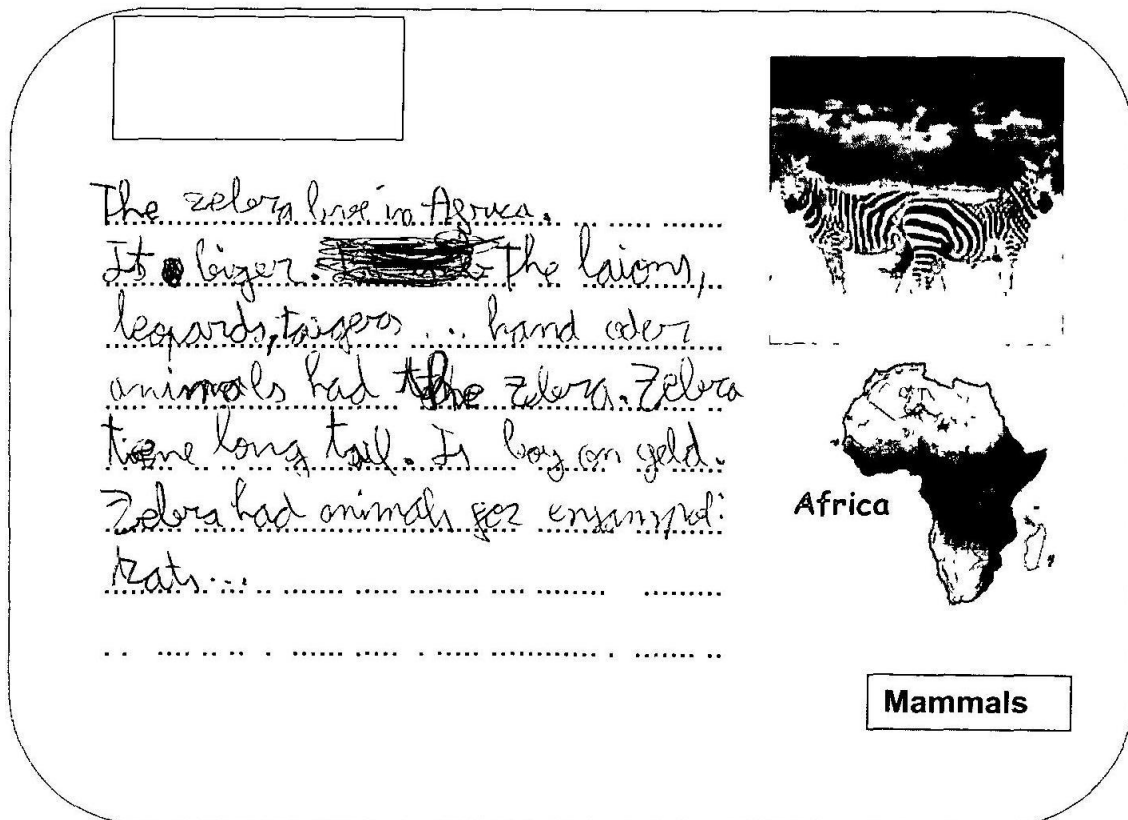 The zebra live in Africa.
It biger. The laions,
leopards, taigers ... hand oder
animals had the zebra. Zebra
long tail. Is boy on geld.
Zebra had animals for
rats...
Africa
Mammals